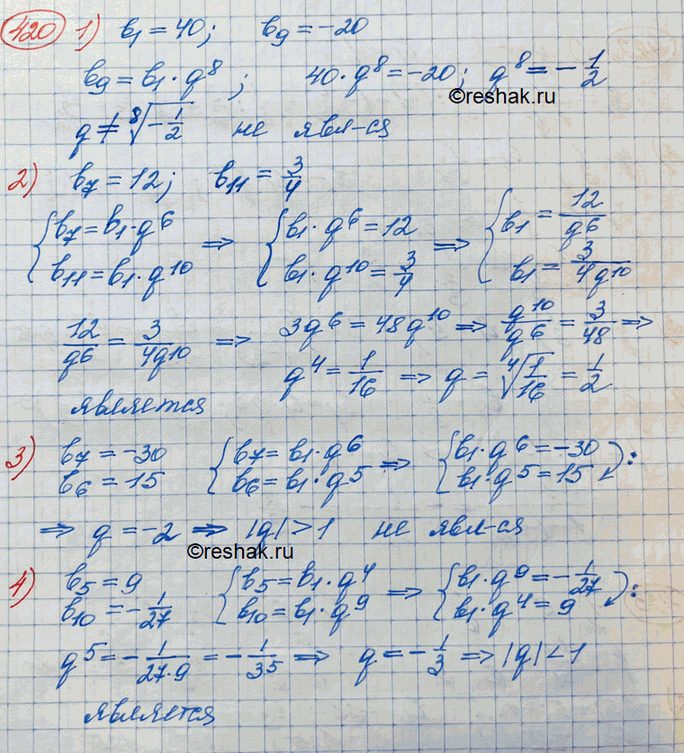 420 1) b₁ = 40; b₉ = -20
b₉ = b₁ · q⁸; 40 · q⁸ = -20; q⁸ = -1/2
©reshak.ru
q ≠ ⁸√(-1/2) не явл-ся
2) b₇ = 12; b₁₁ = 3/4
{b₇ = b₁ · q⁶ ⇒ {b₁ · q⁶ = 12 ⇒ {b₁ = 12/q⁶
{b₁₁ = b₁ · q¹⁰ {b₁ · q¹⁰ = 3/4 {b₁ = 3/4q¹⁰
12/q⁶ = 3/4q¹⁰ ⇒ 3q⁶ = 48q¹⁰ ⇒ q¹⁰/q⁶ = 3/48 ⇒
q⁴ = 1/16 ⇒ q = ⁴√(1/16) = 1/2
является
3) b₇ = -30 {b₇ = b₁ · q⁶ ⇒ {b₁ · q⁶ = -30 :
b₆ = 15 {b₆ = b₁ · q⁵ {b₁ · q⁵ = 15
⇒ q = -2 ⇒ |q| > 1 не явл-ся
©reshak.ru
4) b₅ = 9 {b₅ = b₁ · q⁴ ⇒ {b₁ · q⁹ = -1/27 :
b₁₀ = -1/27 {b₁₀ = b₁ · q⁹ {b₁ · q⁴ = 9
q⁵ = -1/27·9 = -1/3⁵ ⇒ q = -1/3 ⇒ |q| < 1
является